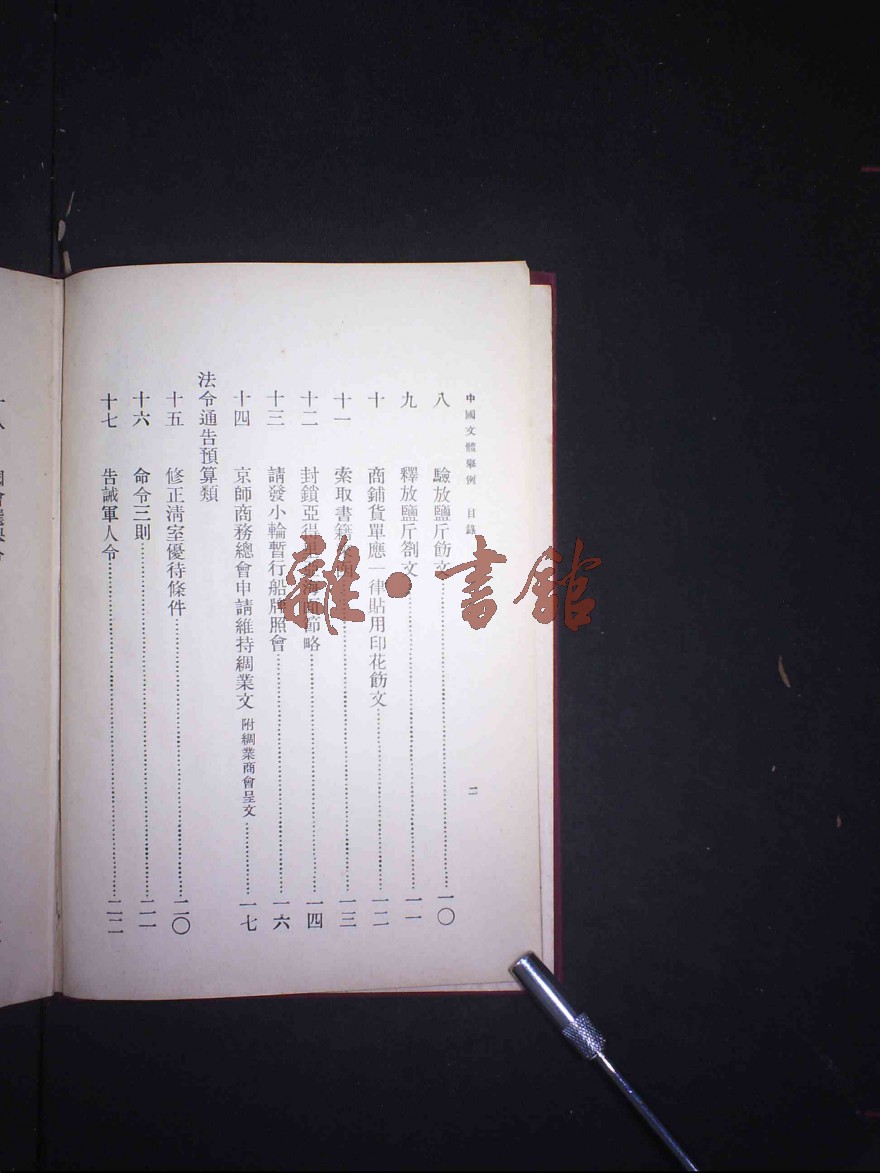 中國文體舉例 目錄 二
八 驗放鹽斤飭文 一〇
九 釋放鹽斤劄文 一一
十 商鋪貨單應一律貼用印花飭文 一二
十一 索取書籍 一三
十二 封鎖亞得 節略 一四
十三 請發小輪暫行船牌照會 一六
十四 京師商務總會申請維持綢業文 附綢業商會呈文 一七
法令通告預算類
十五 修正清室優待條件 二〇
十六 命令三則 二一
十七 告誡軍人令 二二
雜·書館